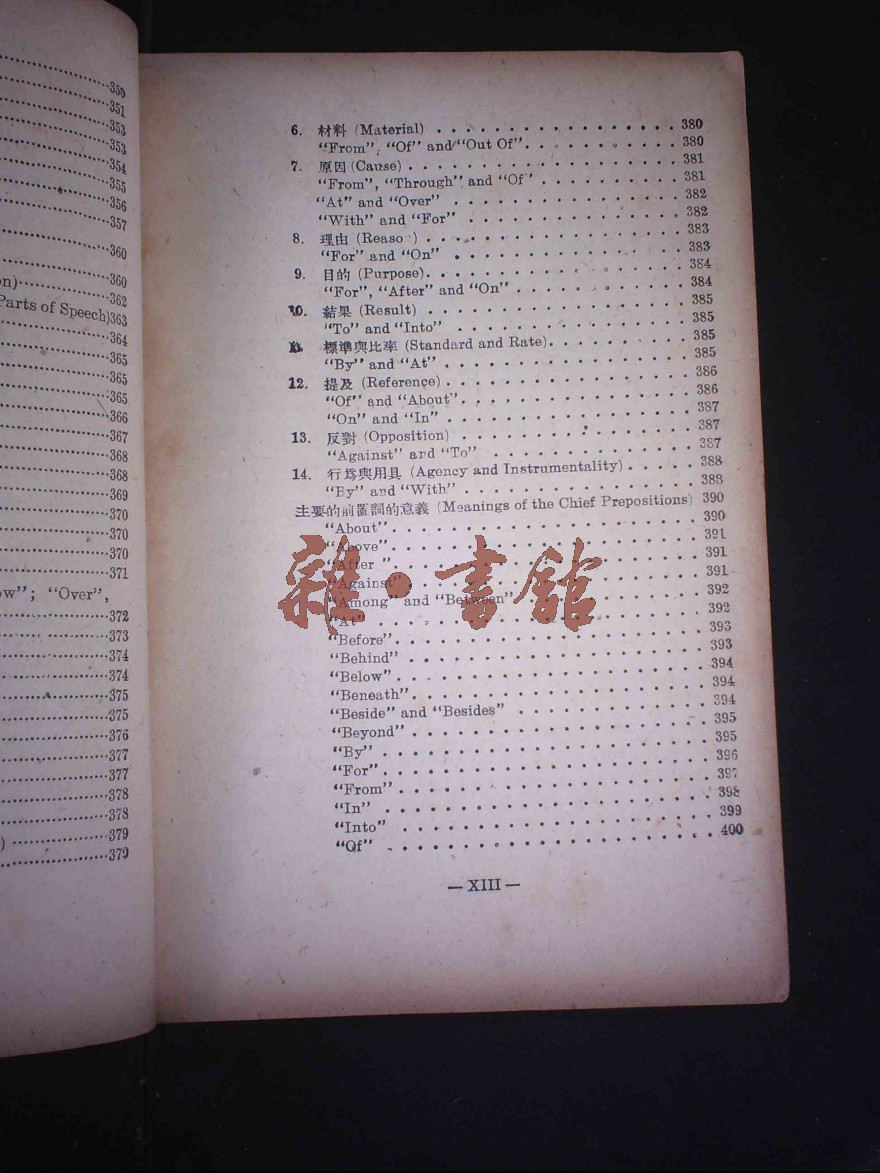 350
351
353
353
354
355
356
357
360
on)······360
362
Parts of Speech)363
364
365
365
365
366
367
368
368
369
370
370
370
371
ow"; "Over",
372
373
374
374
375
375
376
377
377
378
378
) ······379
379
6. 材料 (Material) . . . . . . 380
"From", "Of" and "Out Of". . . . . . 380
7. 原因 (Cause) . . . . . . 381
"From", "Through" and "Of" . . . . . . 381
"At" and "Over" . . . . . . 382
"With" and "For" . . . . . . 382
8. 理由 (Reaso ) . . . . . . 383
"For" and "On" . . . . . . 383
9. 目的 (Purpose). . . . . . 384
"For", "After" and "On" . . . . . . 384
10. 結果 (Result) . . . . . . 385
"To" and "Into" . . . . . . 385
11. 標準與比率 (Standard and Rate). . . . . . 385
"By" and "At" . . . . . . 385
12. 提及 (Reference) . . . . . . 386
"Of" and "About". . . . . . 386
"On" and "In" . . . . . . 387
13. 反對 (Opposition) . . . . . . 387
"Against" and "To" . . . . . . 387
14. 行爲與用具 (Agency and Instrumentality) . . . . . . 388
"By" and "With" . . . . . . 388
主要的前置詞的意義 (Meanings of the Chief Prepositions) 390
"About" . . . . . . 390
"Above" . . . . . . 391
"After " . . . . . . 391
"Against" . . . . . . 391
"Among" and "Between" . . . . . . 392
"At" . . . . . . 392
"Before" . . . . . . 393
"Behind" . . . . . . 393
"Below" . . . . . . 394
"Beneath" . . . . . . 394
"Beside" and "Besides" . . . . . . 394
"Beyond" . . . . . . 395
"By" . . . . . . 395
"For" . . . . . . 396
"From" . . . . . . 397
"In" . . . . . . 398
"Into" . . . . . . 399
"Of" . . . . . . 400
— XIII —
雜·書館